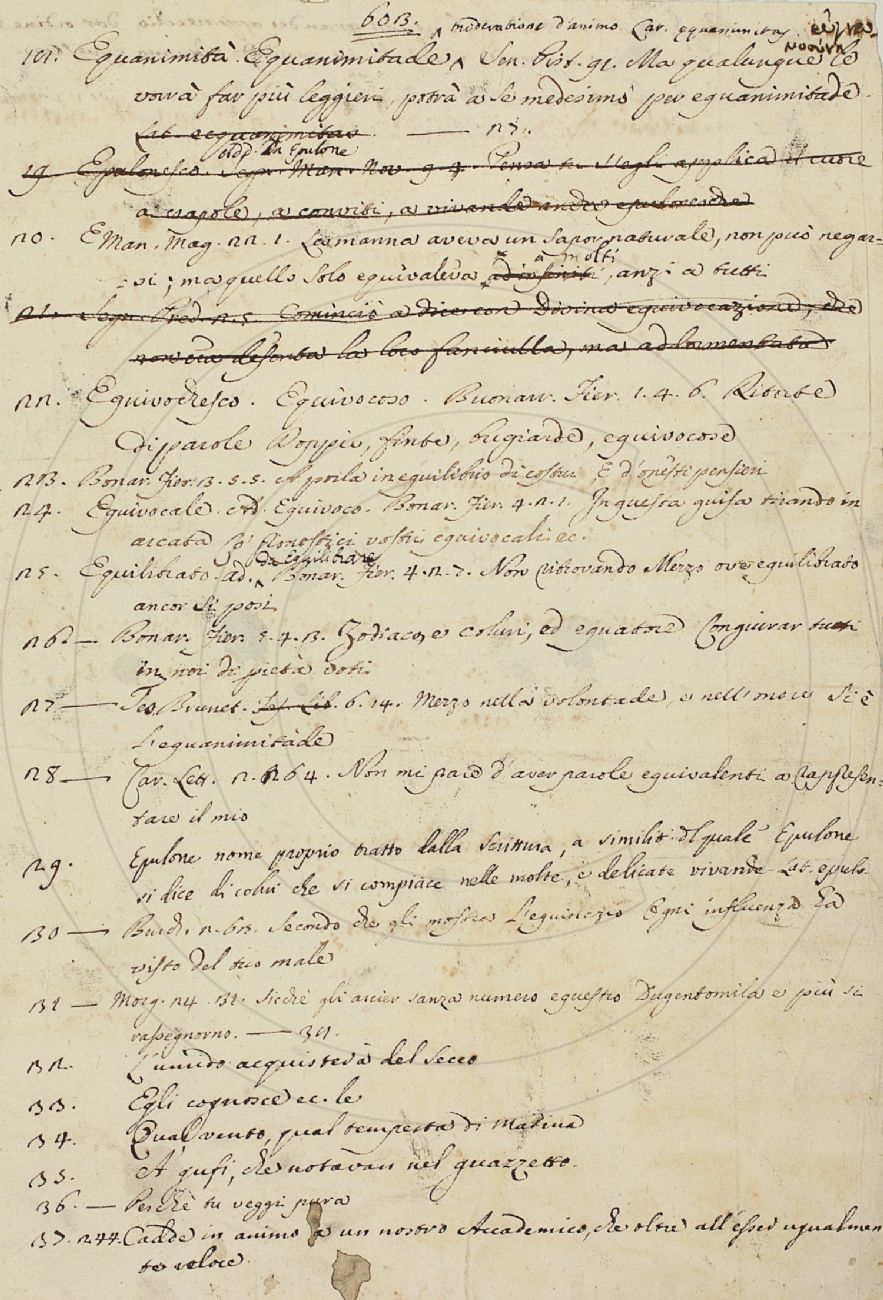 603.
moderatione d'animo Lat. equanimitas.
101. Equanimità Equanimitade Sen. Pist. 91. Ma qualunque le
vorrà far più leggieri, potrà a se medesimo per equanimitade
Lat. aequanimitas — 27.
add. Da Epulone
19 Epulonesco. Segn. Man. Nov. 9 4. Pensa tu s'egli applica il cuore
a crapole, a conviti, a vivande anche epulonesche
20. E Man. Mag. 22. 1. La manna aveva un sapor naturale, non può negar=
=si; ma quello solo equivaleva ad infiniti a molti, anzi a tutti
21. Segn. Pred. 2. 5. Cominciò a dice con Divina equivocazione, che
non era defonta la loro fanciulla, ma addormentata
22. Equivochesco. Equivocoso. Buonarr. Fier. 1. 4. 6. Ritorte
di parole doppie, finte, bugiarde, equivocose
23. Bonar. Fier. 3. 5. 5. A porla in equilibrio di costui, E d'onesti pensieri
24. Equivocale. Ad. Equivoco. Bonar. Fier. 4. 2. 1. In questa guisa tirando in
arcata pronostici vostri equivocali ec.
da Equilibrare
25. Equilibrato ad. Bonar. Fier. 4. 2. 7. Non ritrovando Mezzo ove equilibrato
ancor si posi
26 — Bonar. Fier. 5. 4. 3. Zodiaco, e coluri, ed equatore Congiurar tutti
in noi di pietà voti
27 — Tes. Brunet. Tes. Lib. 6. 14. Mezzo nella volontade, e nell'
L'equanimitade
28 — Car. Lett. 2. 264. Non mi pare d'aver parole equivalenti a rappresen=
tare il mio
29. Epulone nome proprio tratto dalla Scrittura, a similit. del quale Epulone
si dice di colui che si compiace nelle molte, e delicate vivande Lat. epulo
30 — Burch. 2. 63. Secondo che gli mostra L'equinozio Ogni influenza ha
visto del tuo male
31 — Morg. 24. 31. Sicchè gli arcier sanza numero equestro Dugentomila e più si
rassegnorno. — 34.
32. L'umido acquisterà del secco
33. Egli cognosce ec. le
34. Qual vento, qual tempesta di marina
35. A' gufi, che notavan nel guazzetto.
36. — Perchè tu veggi pura
37. 244. Cadde in animo a un nostro Accademico, che oltre all'esser ugualmen
te veloce